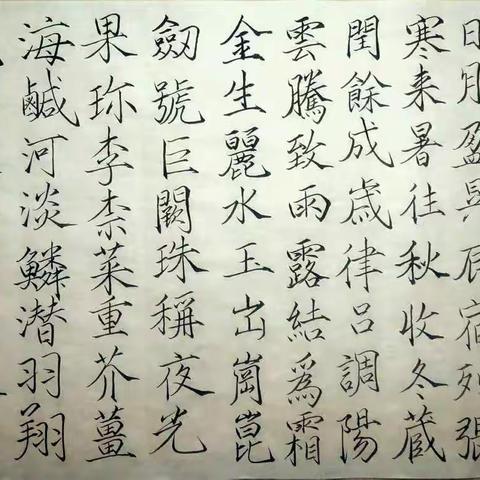 日月盈昃辰宿列張
寒来暑往秋收冬蔵
閏餘成歳律吕調陽
雲騰致雨露結爲霜
金生麗水玉出崗崑
劔號巨闕珠稱夜光
果珎李柰菜重芥薑
海鹹河淡鱗潜羽翔